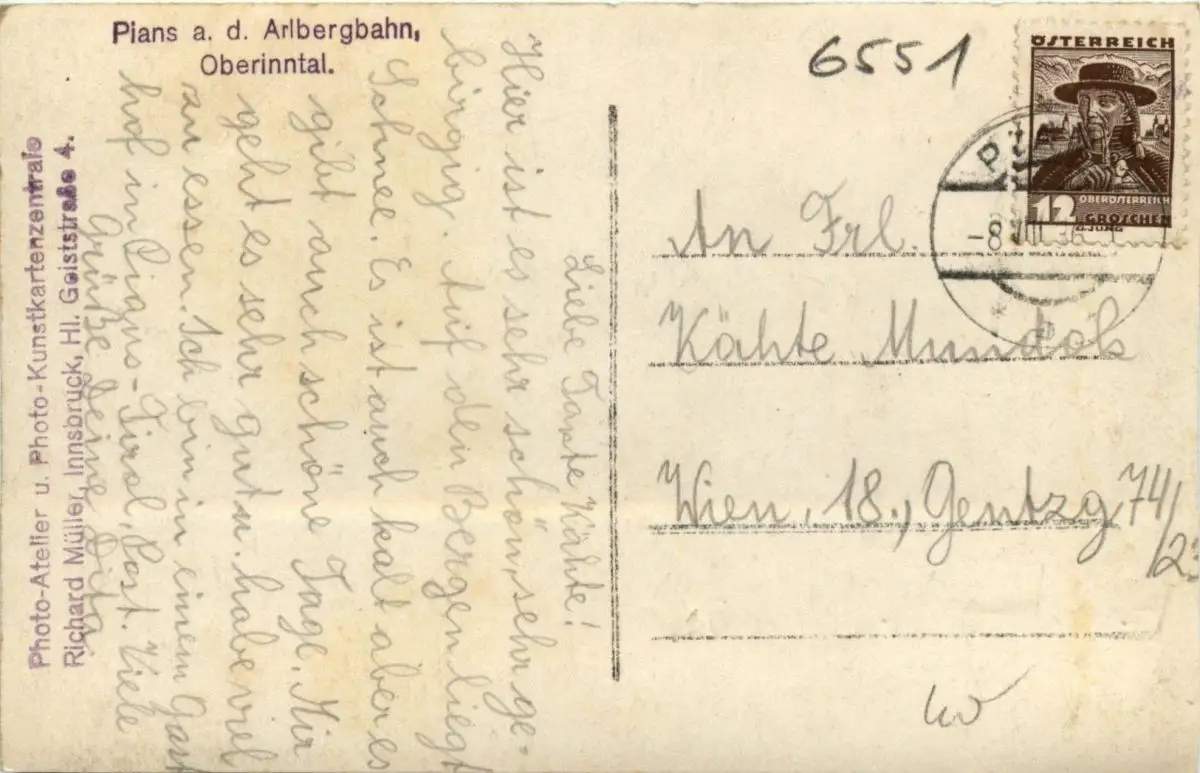 Pians a. d. Arlbergbahn,
Oberinntal.
Photo-Atelier u. Photo-Kunstkartenzentrale
Richard Müller, Innsbruck, Hl. Geiststraße 4.
Liebe Tante Kähte!
Hier ist es sehr schön, sehr ge-
birgig. Auf den Bergen liegt
Schnee. Es ist auch kalt aber es
gibt auch schöne Tage. Mir
geht es sehr gut u. habe viel
zu essen. Ich bin in einem Gast
hof in Pians-Tirol, Post. Viele
Grüße Deine
6551
ÖSTERREICH
OBERÖSTERREICH
12 GROSCHEN
-8. VIII. 36
An Frl.
Kähte
Wien, 18., Gentzg 74/